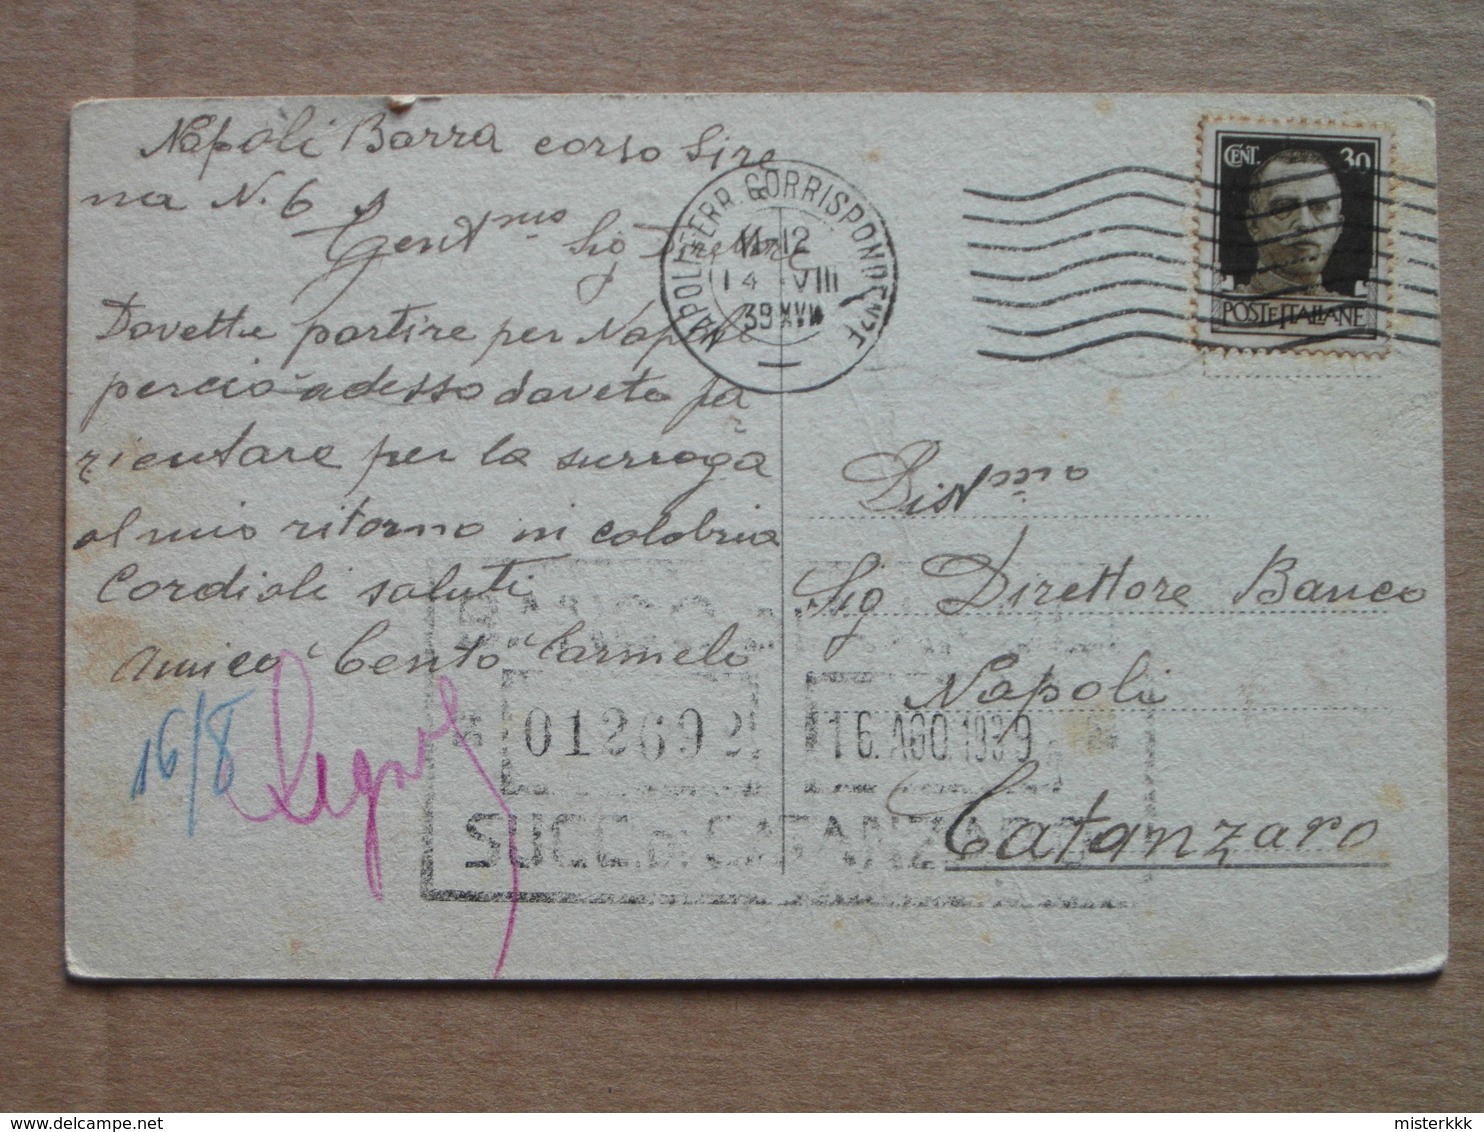 Napoli Barra corso Sire
na N. 6
Gent.mo Sig Direttore
Dovette partire per Napoli
perciò adesso doveta pa
zientare per la surroga
al mio ritorno in calabria
Cordiali saluti
Amico Cento Carmelo
16/8
NAPOLI FERR. CORRISPONDENZE
11-12
14 VIII
39 XVII
CENT. 30
POSTE ITALIANE
Dist.mo
Sig Direttore Banco
Napoli
Catanzaro
BANCO
012692
16. AGO. 1939
SUCC. DI CATANZARO
misterkkk